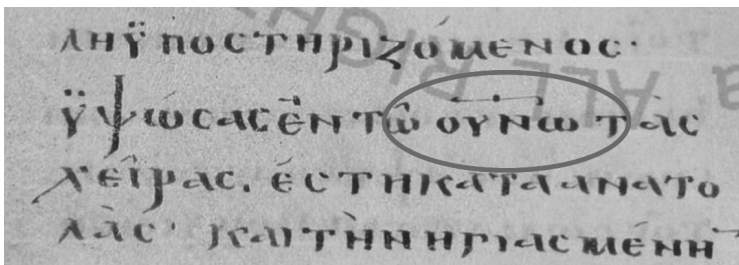 ληϋποστηριζόμενος·
ϋψώσασἐντῶ ο̅υ̅ν̅ω̅ τὰς
χεῖρας. ἔστηκαταανατο
λὰς· καιτὴνηγιασμένη¯